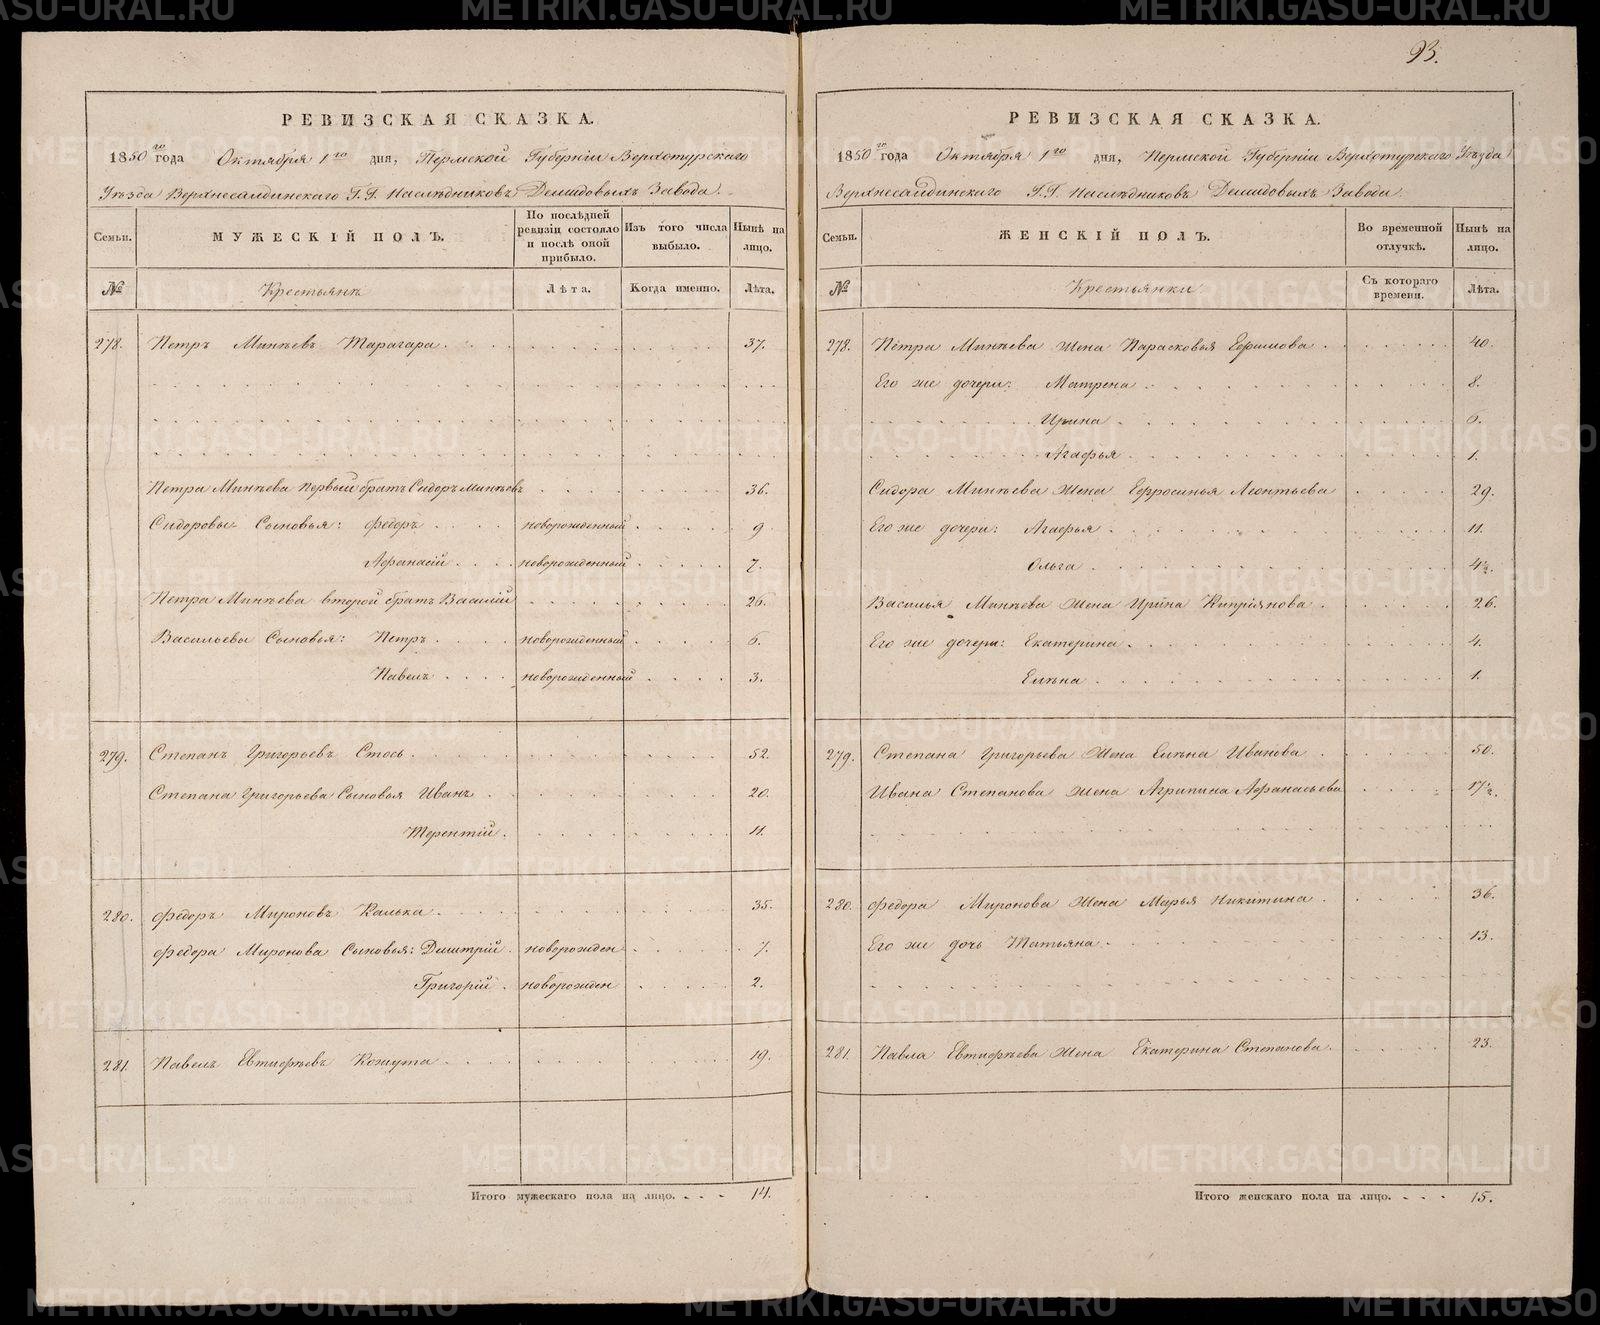 93.
РЕВИЗСКАЯ СКАЗКА.
1850го года Октября 1го дня, Пермской Губерніи Верхотурскаго
Уѣзда Верхнесалдинскаго Г.Г. Наслѣдниковъ Демидовыхъ Завода.
Семьи.
МУЖЕСКІЙ ПОЛЪ.
По послѣдней ревизіи состояло и послѣ оной прибыло.
Изъ того числа выбыло.
Нынѣ на лицо.
№
Крестьянъ
Лѣта.
Когда именно.
Лѣта.
278. Петръ Минѣевъ Тарагара 37.
Петра Минѣева первый братъ Сидоръ Минѣевъ 36.
Сидоровы Сыновья: Федоръ новорожденный 9
Афанасій новорожденный 7.
Петра Минѣева второй братъ Василій 26.
Васильевы Сыновья: Петръ новорожденный 6.
Павелъ новорожденный 3.
279. Степанъ Григорьевъ Стось 52.
Степана Григорьева Сыновья Иванъ 20.
Терентій 11.
280. Федоръ Мироновъ Калька 35.
Федора Миронова Сыновья: Дмитрій новорожден 7.
Григорій новорожден 2.
281. Павелъ Евтифѣевъ Кожута 19.
Итого мужескаго пола на лицо. 14.
РЕВИЗСКАЯ СКАЗКА.
1850го года Октября 1го дня, Пермской Губерніи Верхотурскаго Уѣзда
Верхнесалдинскаго Г.Г. Наслѣдниковъ Демидовыхъ Завода.
Семьи.
ЖЕНСКІЙ ПОЛЪ.
Во временной отлучкѣ.
Нынѣ на лицо.
№
Крестьянки
Съ котораго времени.
Лѣта.
278. Петра Минѣева жена Парасковья Ефимова 40.
Его же дочери: Матрена 8.
Ирина 6.
Агафья 1.
Сидора Минѣева жена Ефросинья Леонтьева 29.
Его же дочери: Агафья 11.
Ольга 4½.
Василья Минѣева жена Ирина Кипріянова 26.
Его же дочери: Екатерина 4.
Елѣна 1.
279. Степана Григорьева жена Елѣна Иванова 50.
Ивана Степанова жена Агрипина Афанасьева 17½.
280. Федора Миронова жена Марья Никитина 36.
Его же дочь Татьяна 13.
281. Павла Евтифѣева жена Екатерина Степанова 23.
Итого женскаго пола на лицо. 15.
METRIKI.GASO-URAL.RU